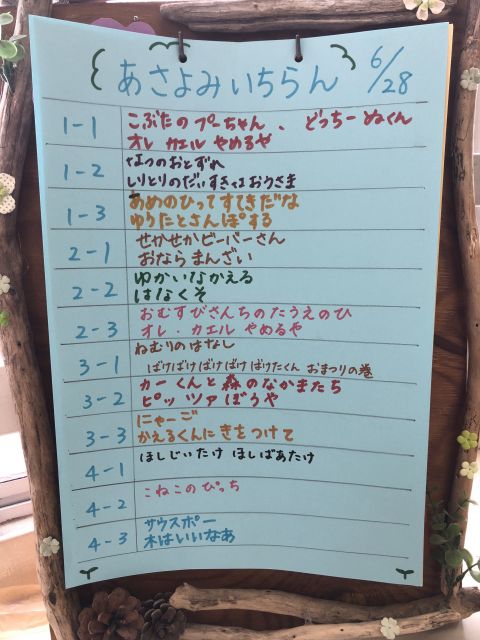 あさよみいちらん 6/28
1-1 こぶたのプーちゃん、どっちーぬくん
オレ カエル やめるや
1-2 なつのおとずれ
しりとりのだいすきなおうさま
1-3 あめのひってすてきだな
ゆりたとさんぽする
2-1 せかせかビーバーさん
おならまんざい
2-2 ゆかいなかえる
はなくそ
2-3 おむすびさんちのたうえのひ
オレ・カエル やめるや
3-1 ねむりのはなし
ばけばけばけばけばけたくん おまつりの巻
3-2 カーくんと森のなかまたち
ピッツァぼうや
3-3 にゃーご
かえるくんにきをつけて
4-1 ほしじいたけ ほしばあたけ
4-2 こねこのぴっち
4-3 サウスポー
木はいいなあ